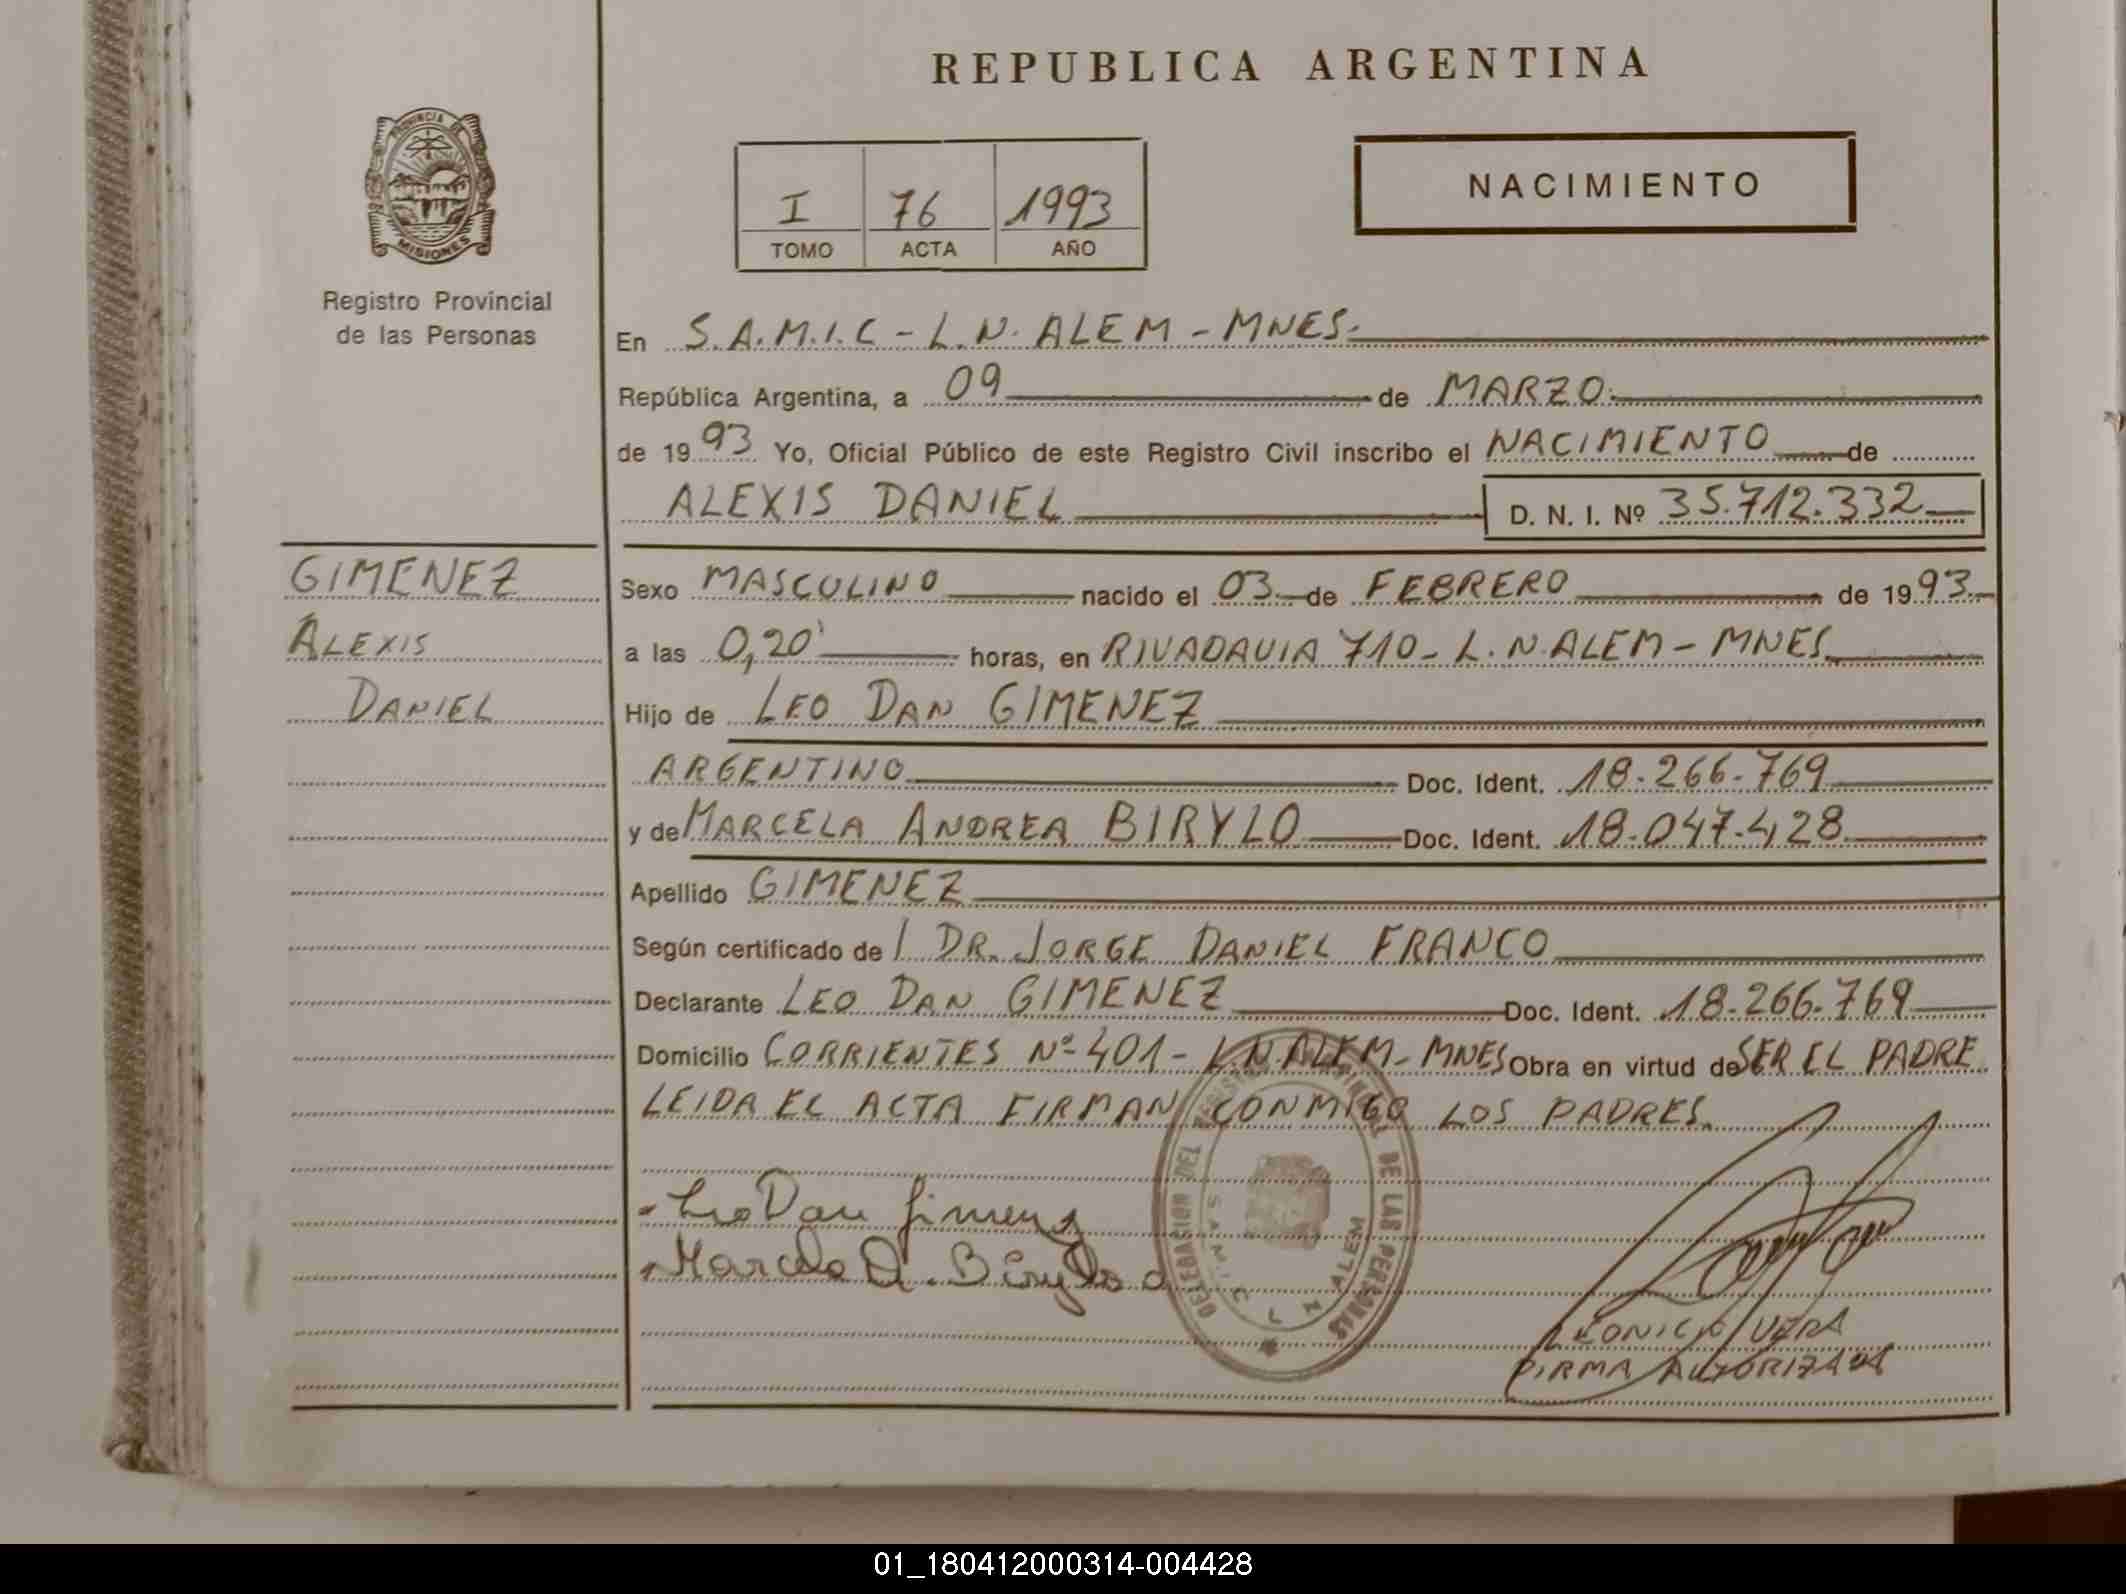 REPUBLICA ARGENTINA
PROVINCIA DE
MISIONES
Registro Provincial
de las Personas
I 76 1993
TOMO ACTA AÑO
NACIMIENTO
En S.A.M.I.C - L.N. ALEM - MNES.
República Argentina, a 09 de MARZO.
de 1993 Yo, Oficial Público de este Registro Civil inscribo el NACIMIENTO de
ALEXIS DANIEL D. N. I. Nº 35.712.332
GIMENEZ
ALEXIS
DANIEL
Sexo MASCULINO nacido el 03 de FEBRERO de 1993
a las 0,20' horas, en RIVADAVIA 710 - L.N. ALEM - MNES
Hijo de LEO DAN GIMENEZ
ARGENTINO Doc. Ident. 18.266.769
y de MARCELA ANDREA BIRYLO Doc. Ident. 18.047.428
Apellido GIMENEZ
Según certificado de / DR. JORGE DANIEL FRANCO
Declarante LEO DAN GIMENEZ Doc. Ident. 18.266.769
Domicilio CORRIENTES Nº 401 - L.N. ALEM - MNES Obra en virtud de SER EL PADRE
LEIDA EL ACTA FIRMAN CONMIGO LOS PADRES.
Leo Dan Gimenez
Marcela A. Birylo
DELEGACION DEL REGISTRO PROVINCIAL DE LAS PERSONAS
SAMIC L N ALEM
LEONICIO VERA
FIRMA AUTORIZADA
01_180412000314-004428